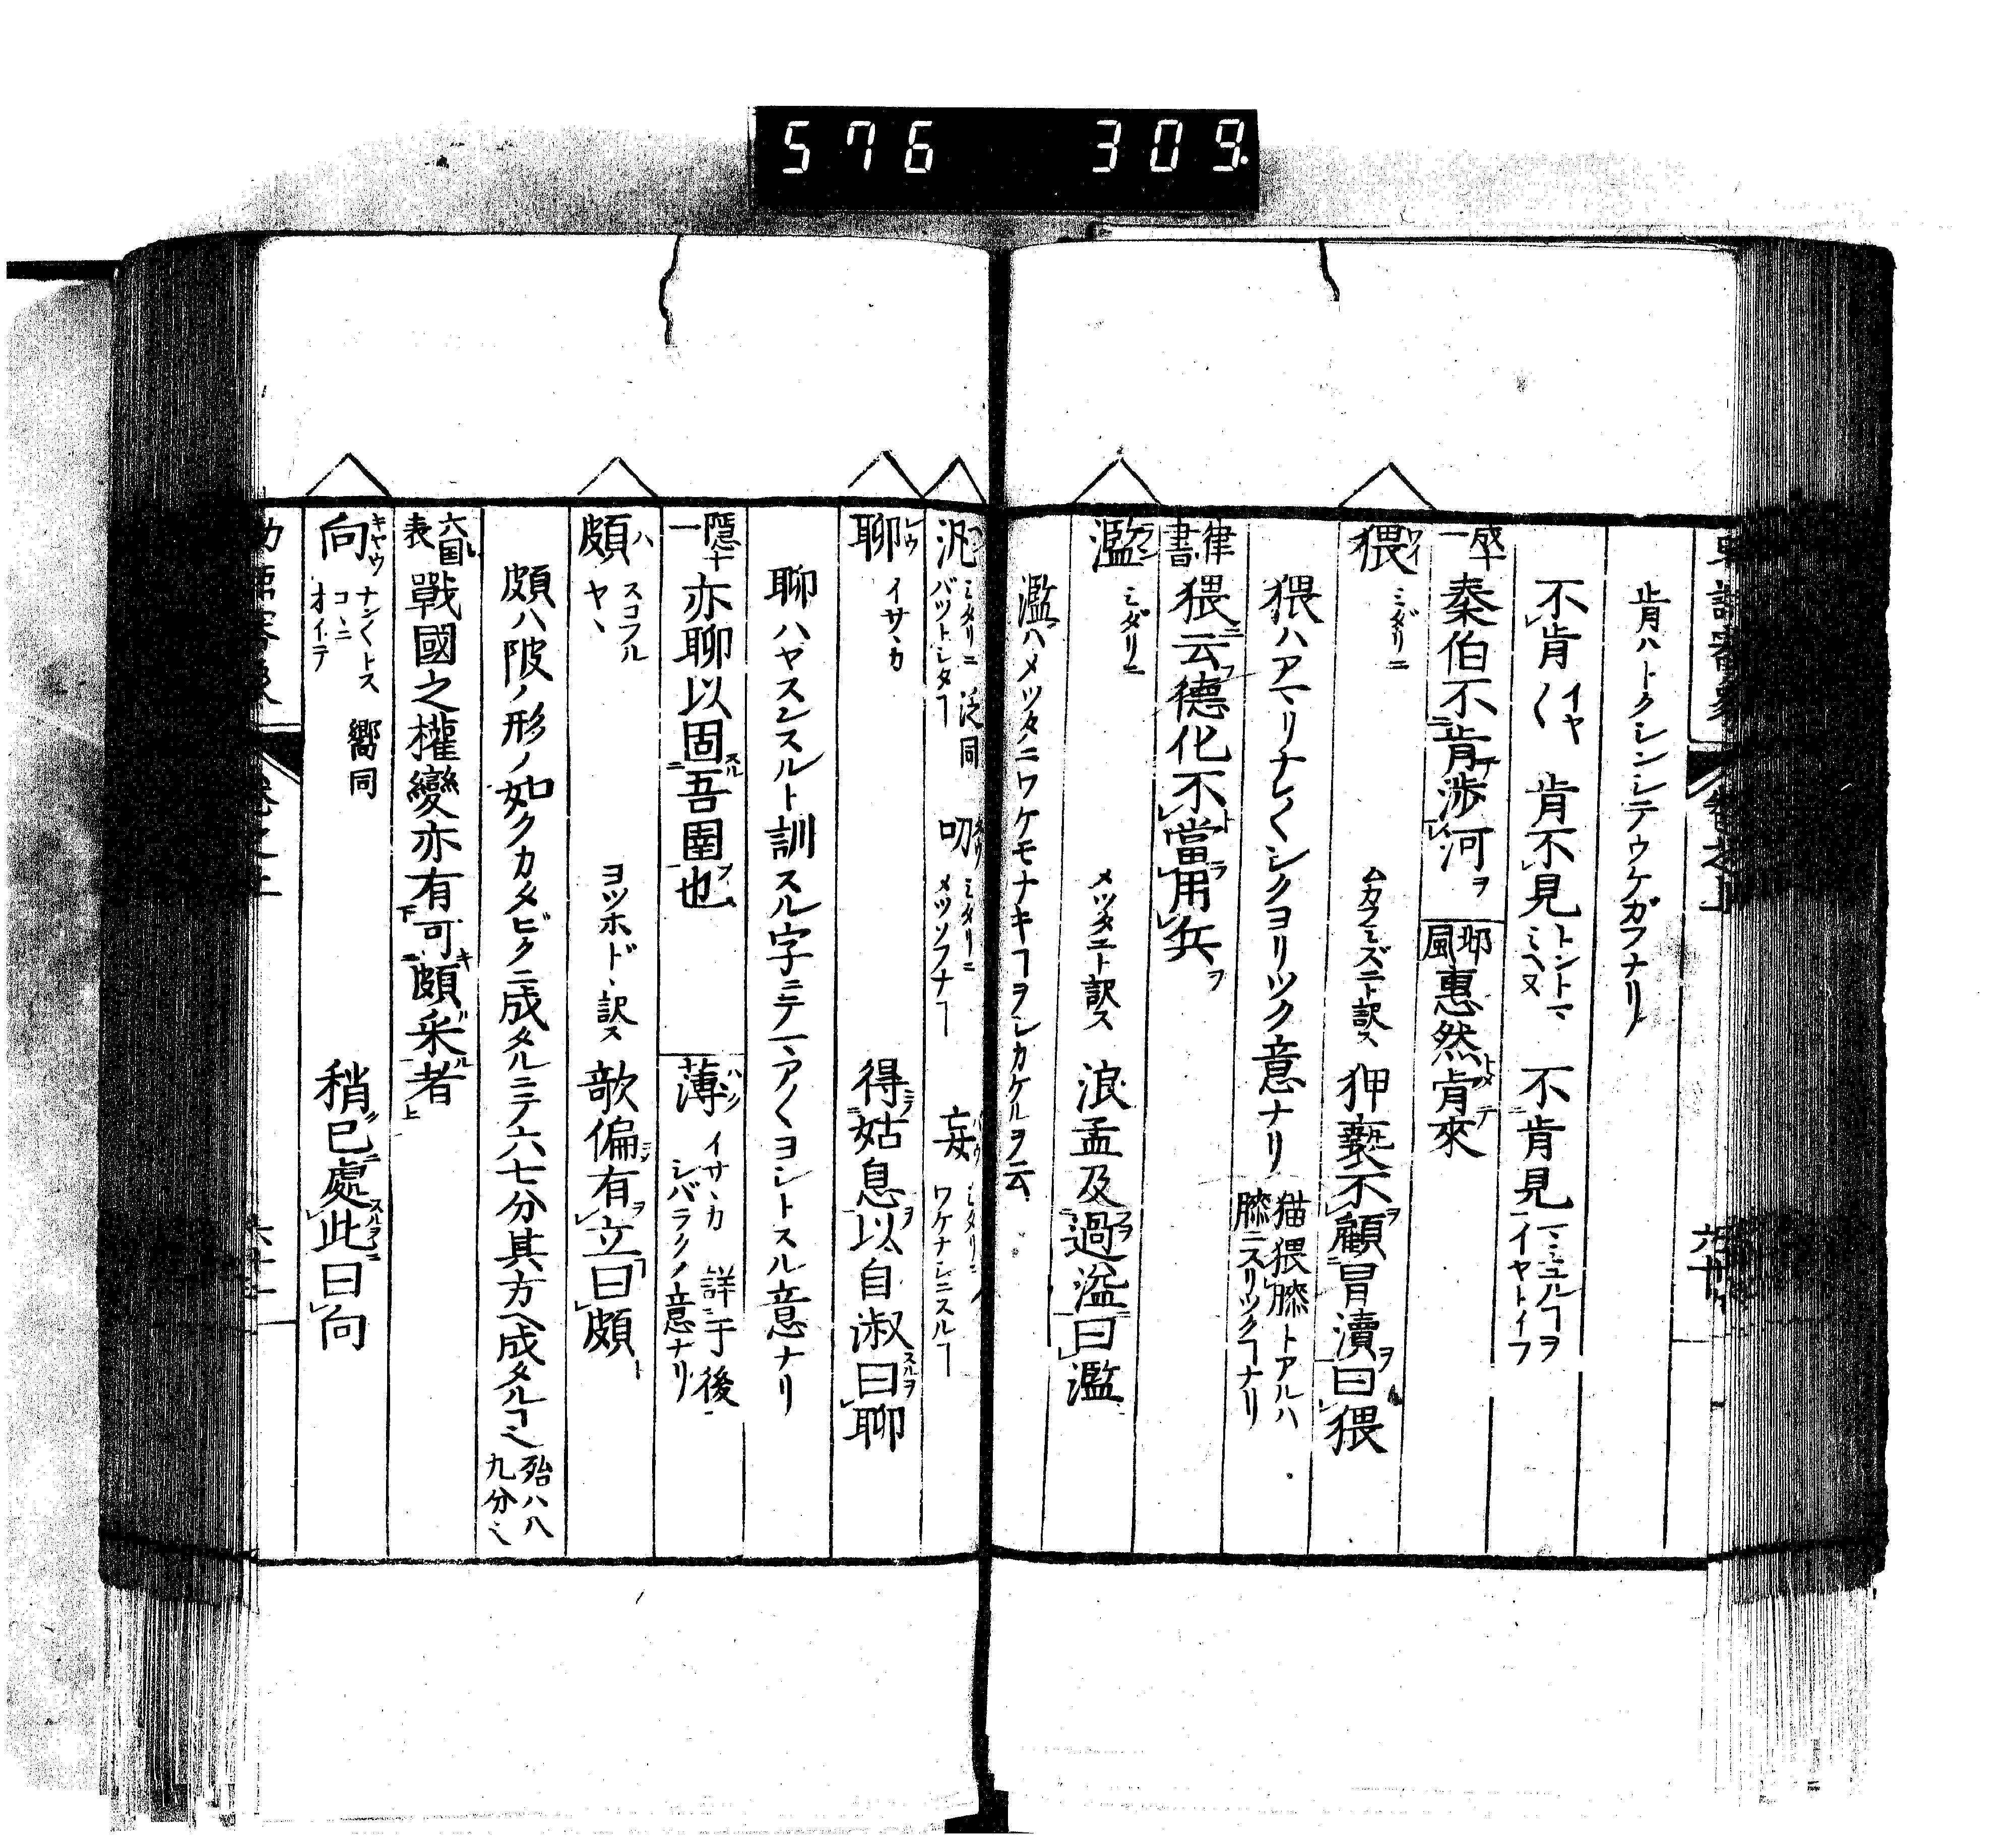 576 309
肯ハトクシンシテウケガフナリ
不肯 イヤ〱 肯不見 トントマミヘヌ 不肯見 マミユルヿヲイヤトイフ
秦伯不肯渉河ヲ 邶風 惠然肯來
猥 ワイ ミダリニ ムカフミズニト訳ス 狎褻不顧冒瀆曰猥
猥ハアマリナレ〱シクヨリツク意ナリ 猫猥膝トアルハ膝ニスリツクヿナリ
律書 猥云德化不當用兵ヲ
濫 ミダリニ メツタニト訳ス 浪孟及過溢曰濫
濫ハメツタニワケモナキヿヲシカケルヲ云
汎 ミタリニ バツトシタヿ 泛同 叨 ミタリニ メツソフナヿ 妄 ミタリニ ワケナシニスルヿ
聊 レウ イサヽカ 得姑息以自淑曰聊
聊ハヤスンスルト訓スル字ニテマヽアノ〱ヨシトスル意ナリ
隱十一 亦聊以固吾圉也 薄 イサヽカ シバラクノ意ナリ 詳于後
頗 ハ スコフル ヤヽ ヨツホドヽ訳ス 欹偏有立曰頗
頗ハ陂ノ形ノ如クカタビクニ成タルニテ六七分其方ヘ成タルヿ也 殆ハ八九分也
六国表 戰國之權變亦有可頗采者
向 キヤウ ナン〱トス コヽニオイテ 嚮同 稍已處此曰向